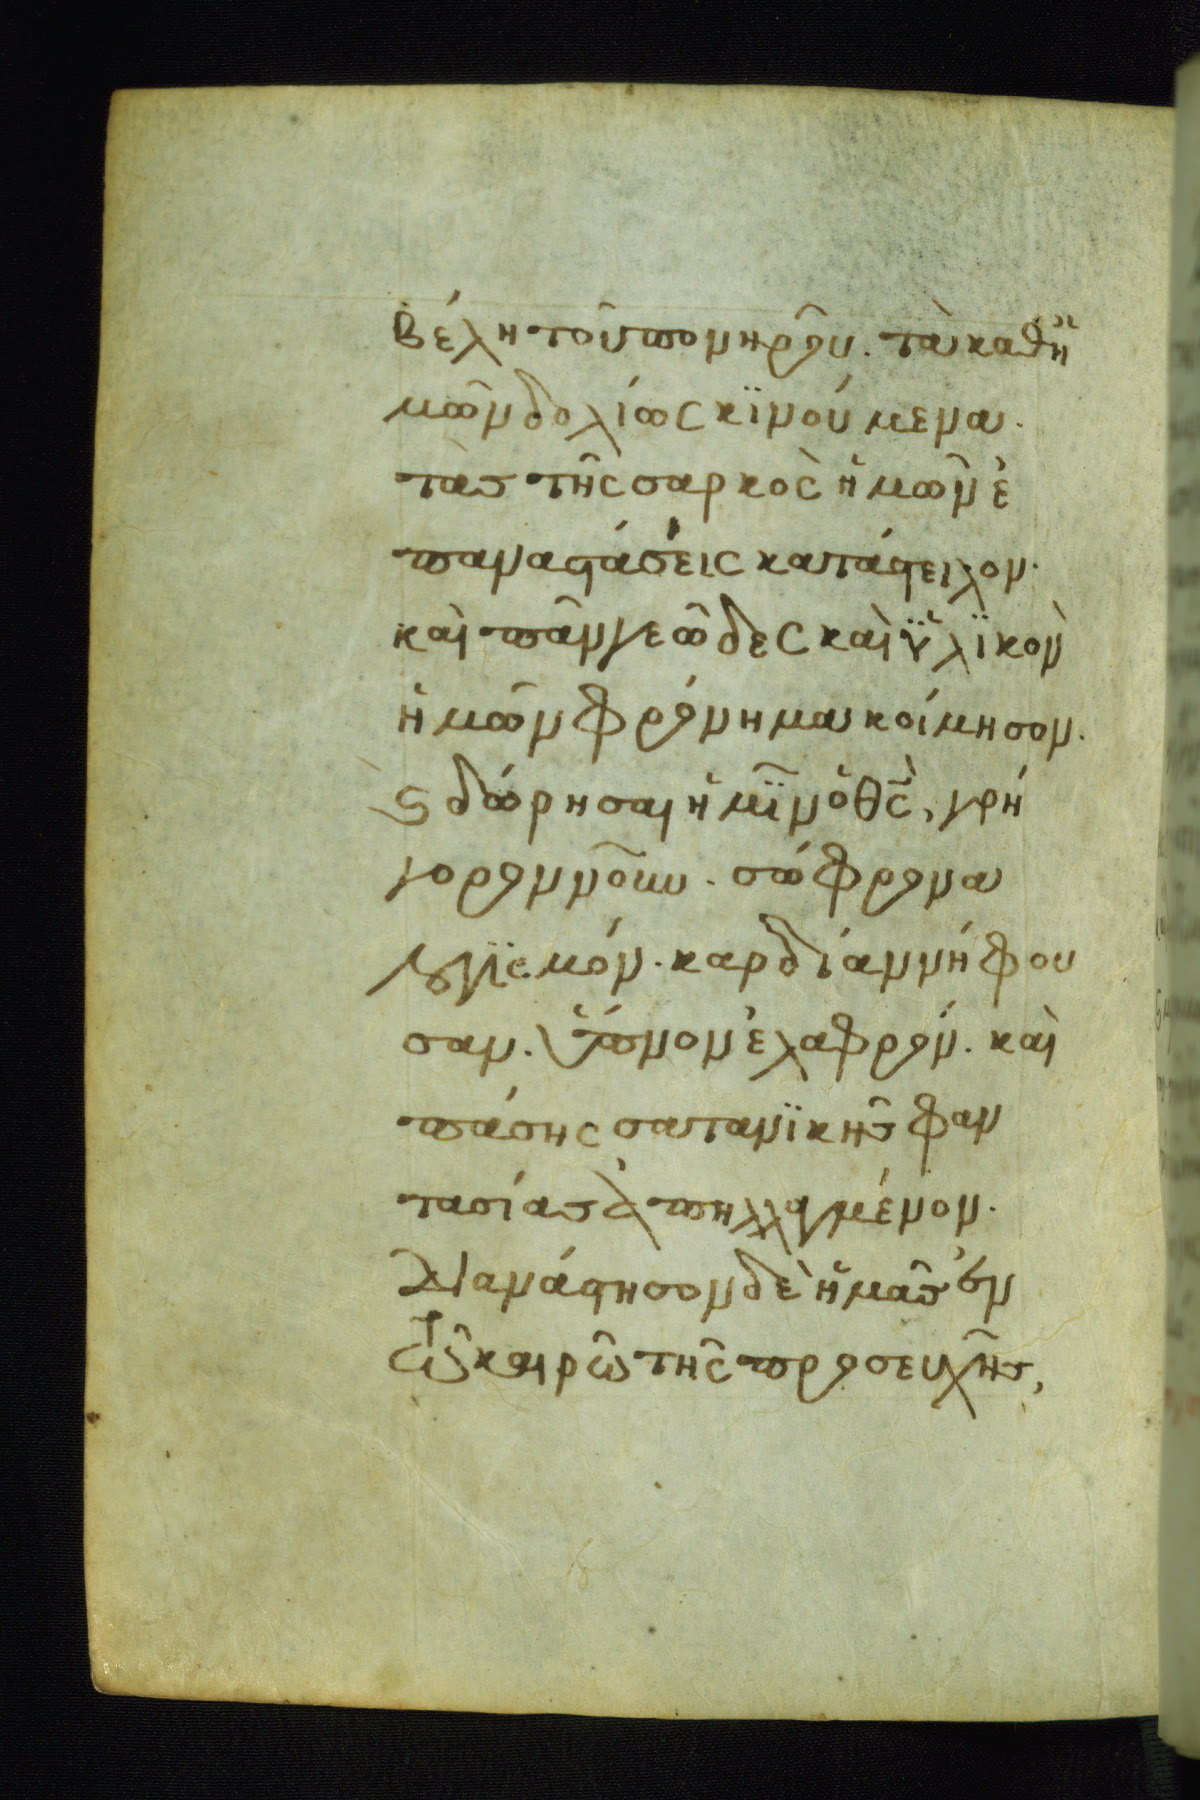 βέλη τοῦ πονηροῦ. τὰ καθ' ἡ
μῶν δολίως κϊνούμενα.
τὰς τῆς σαρκὸς ἡμῶν ἐ
παναστάσεις κατάστειλον.
καὶ πᾶν γεῶδες καὶ ὑλϊκὸν
ἡμῶν φρόνημα κοίμησον.
Ϛ δώρησαι ἡμῖν ὁ θς̄, γρή
γορον νοῦν. σώφρονα
λογϊσμόν. καρδίαν νήφου
σαν. ὕπνον ἐλαφρόν. καὶ
πάσης σατανϊκῆς φαν
τασίας ἀπηλλαγμένον.
διανάστησον δὲ ἡμᾶς ἐν
τῶ καιρῶ τῆς προσευχῆς,